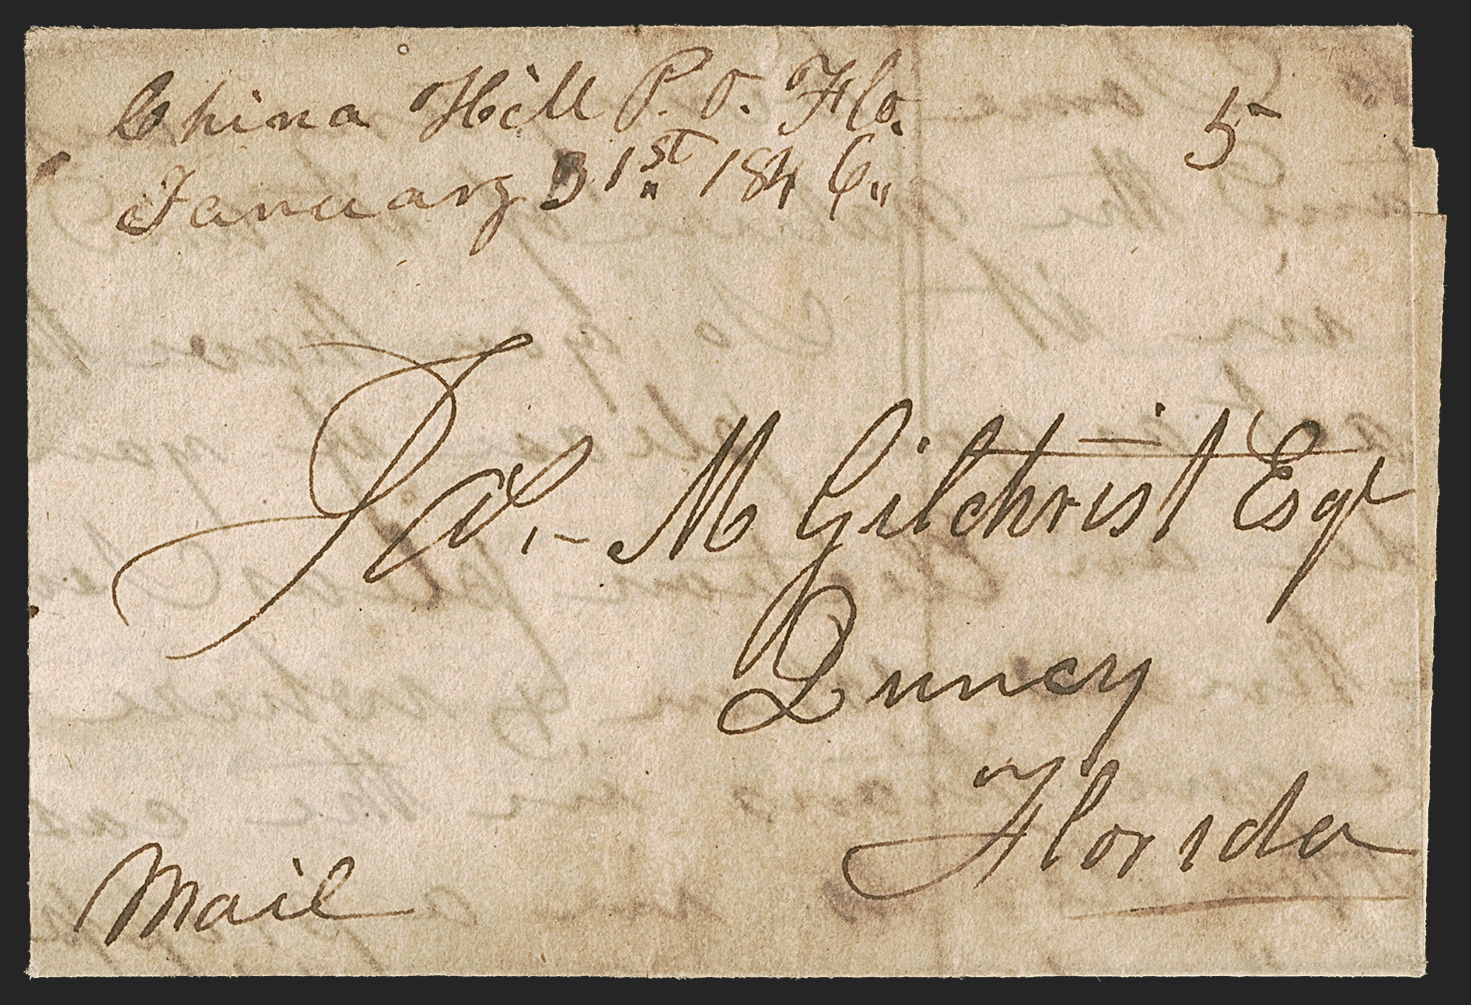 China Hill P.O. Flo.
January 31st 1846
5
Jas. M Gilchrist Esqr
Quncy
Florida
Mail